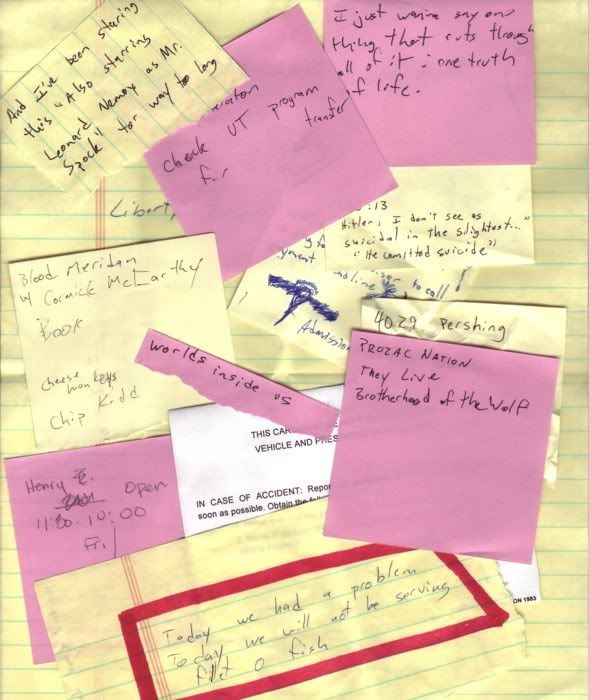 And I've been starring
this "Also starring
Leonard Nemoy as Mr.
Spock" for way to long
I just wanna say one
thing that cuts through
all of it : one truth
of life.
check UT program
for transfer
:13
Hitler, I don't see as
suicidal in the slightest..."
"He comitted suicide")
to call!
Admission
Blood Meridan
w/ Cormick McCarthy
Book
cheese monkeys
Chip Kidd
4029 Pershing
worlds inside us
PROZAC NATION
They Live
Brotherhood of the Wolf
THIS CAR
VEHICLE AND PRES
IN CASE OF ACCIDENT: Repor
soon as possible. Obtain the
ON 1983
Henry E.
Open
11:30-10:00
Fri
Today we had a problem
Today we will not be serving
filet O fish